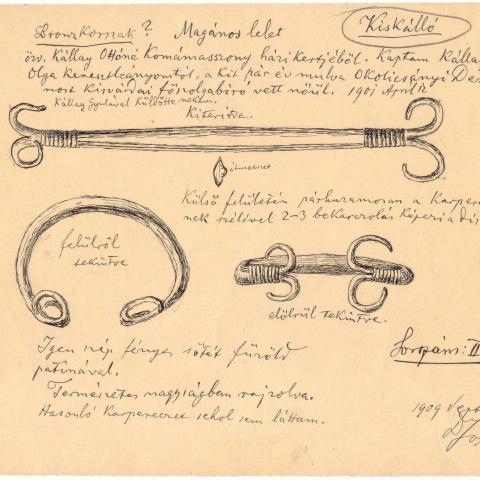 Bronzkorszak? Magános lelet
Kiskálló
özv. Kállay Ottóné Komámasszony házi kertjéből. Kaptam Kálla
Olga keresztleányomtól, a kit pár év mulva Okolicsányi De
most Kisvárdai főszolgabíró vett nőül. 1901 April
Kállay Gyulával küldötte nekem.
Kiterítve.
átmetszet
Külső felületén párhuzamosan a Karpere
nek szélével 2-3 bekarczolás képezi a dis
felülről
tekintve
előlről tekintve.
Igen szép fényes sötét fűzöld
patinával.
Sorszám: II
Természetes nagyságban rajzolva.
Hasonló Karperecet sehol sem láttam.
1909